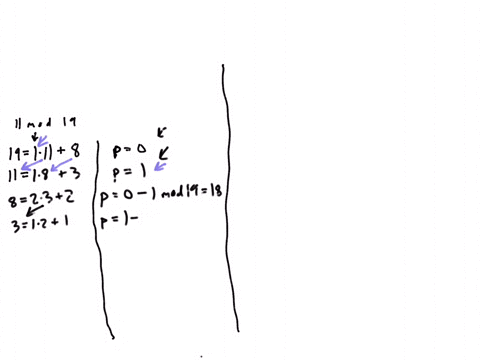 11 mod 19
19 = 1·11 + 8
11 = 1·8 + 3
8 = 2·3 + 2
3 = 1·2 + 1
p = 0
p = 1
p = 0 - 1 mod 19 = 18
p = 1 -